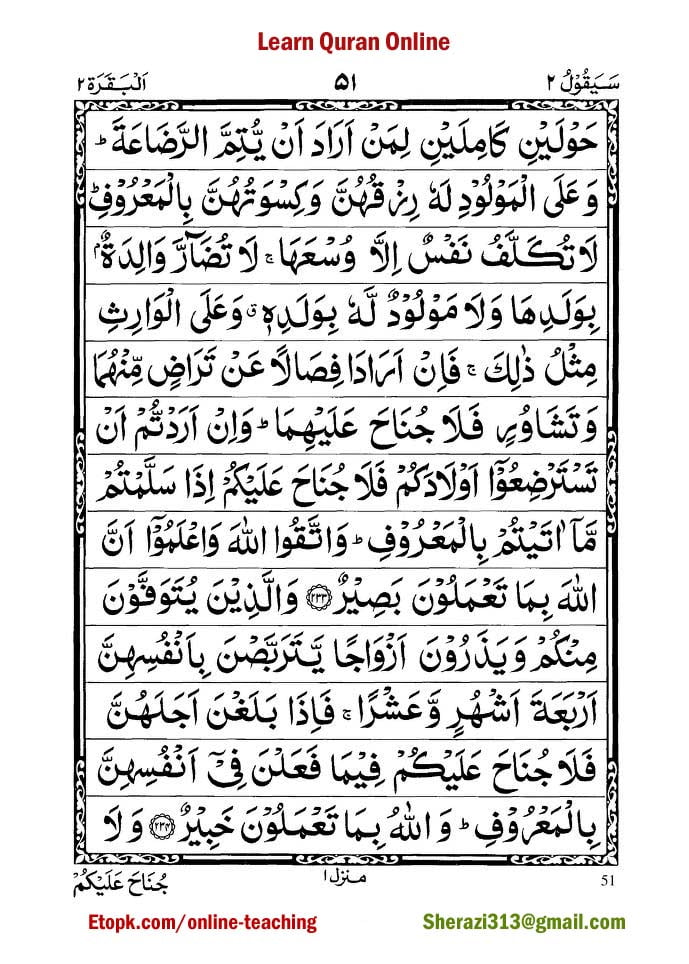 Learn Quran Online
سَيَقُوْلُ ٢ ۵۱ اَلْبَقَرَة ٢
حَوْلَيْنِ كَامِلَيْنِ لِمَنْ اَرَادَ اَنْ يُّتِمَّ الرَّضَاعَةَ ؕ
وَعَلَى الْمَوْلُوْدِ لَهٗ رِزْقُهُنَّ وَكِسْوَتُهُنَّ بِالْمَعْرُوْفِ ؕ
لَا تُكَلَّفُ نَفْسٌ اِلَّا وُسْعَهَا ۚ لَا تُضَآرَّ وَالِدَةٌۢ
بِوَلَدِهَا وَلَا مَوْلُوْدٌ لَّهٗ بِوَلَدِهٖ ۗ وَعَلَى الْوَارِثِ
مِثْلُ ذٰلِكَ ۚ فَاِنْ اَرَادَا فِصَالًا عَنْ تَرَاضٍ مِّنْهُمَا
وَتَشَاوُرٍ فَلَا جُنَاحَ عَلَيْهِمَا ؕ وَاِنْ اَرَدْتُّمْ اَنْ
تَسْتَرْضِعُوْۤا اَوْلَادَكُمْ فَلَا جُنَاحَ عَلَيْكُمْ اِذَا سَلَّمْتُمْ
مَّاۤ اٰتَيْتُمْ بِالْمَعْرُوْفِ ؕ وَاتَّقُوا اللّٰهَ وَاعْلَمُوْۤا اَنَّ
اللّٰهَ بِمَا تَعْمَلُوْنَ بَصِيْرٌ ﴿٢٣٣﴾ وَالَّذِيْنَ يُتَوَفَّوْنَ
مِنْكُمْ وَيَذَرُوْنَ اَزْوَاجًا يَّتَرَبَّصْنَ بِاَنْفُسِهِنَّ
اَرْبَعَةَ اَشْهُرٍ وَّعَشْرًا ۚ فَاِذَا بَلَغْنَ اَجَلَهُنَّ
فَلَا جُنَاحَ عَلَيْكُمْ فِيْمَا فَعَلْنَ فِىْۤ اَنْفُسِهِنَّ
بِالْمَعْرُوْفِ ؕ وَاللّٰهُ بِمَا تَعْمَلُوْنَ خَبِيْرٌ ﴿٢٣٤﴾ وَلَا
51 منزل ١ جُنَاحَ عَلَيْكُمْ
Etopk.com/online-teaching Sherazi313@gmail.com